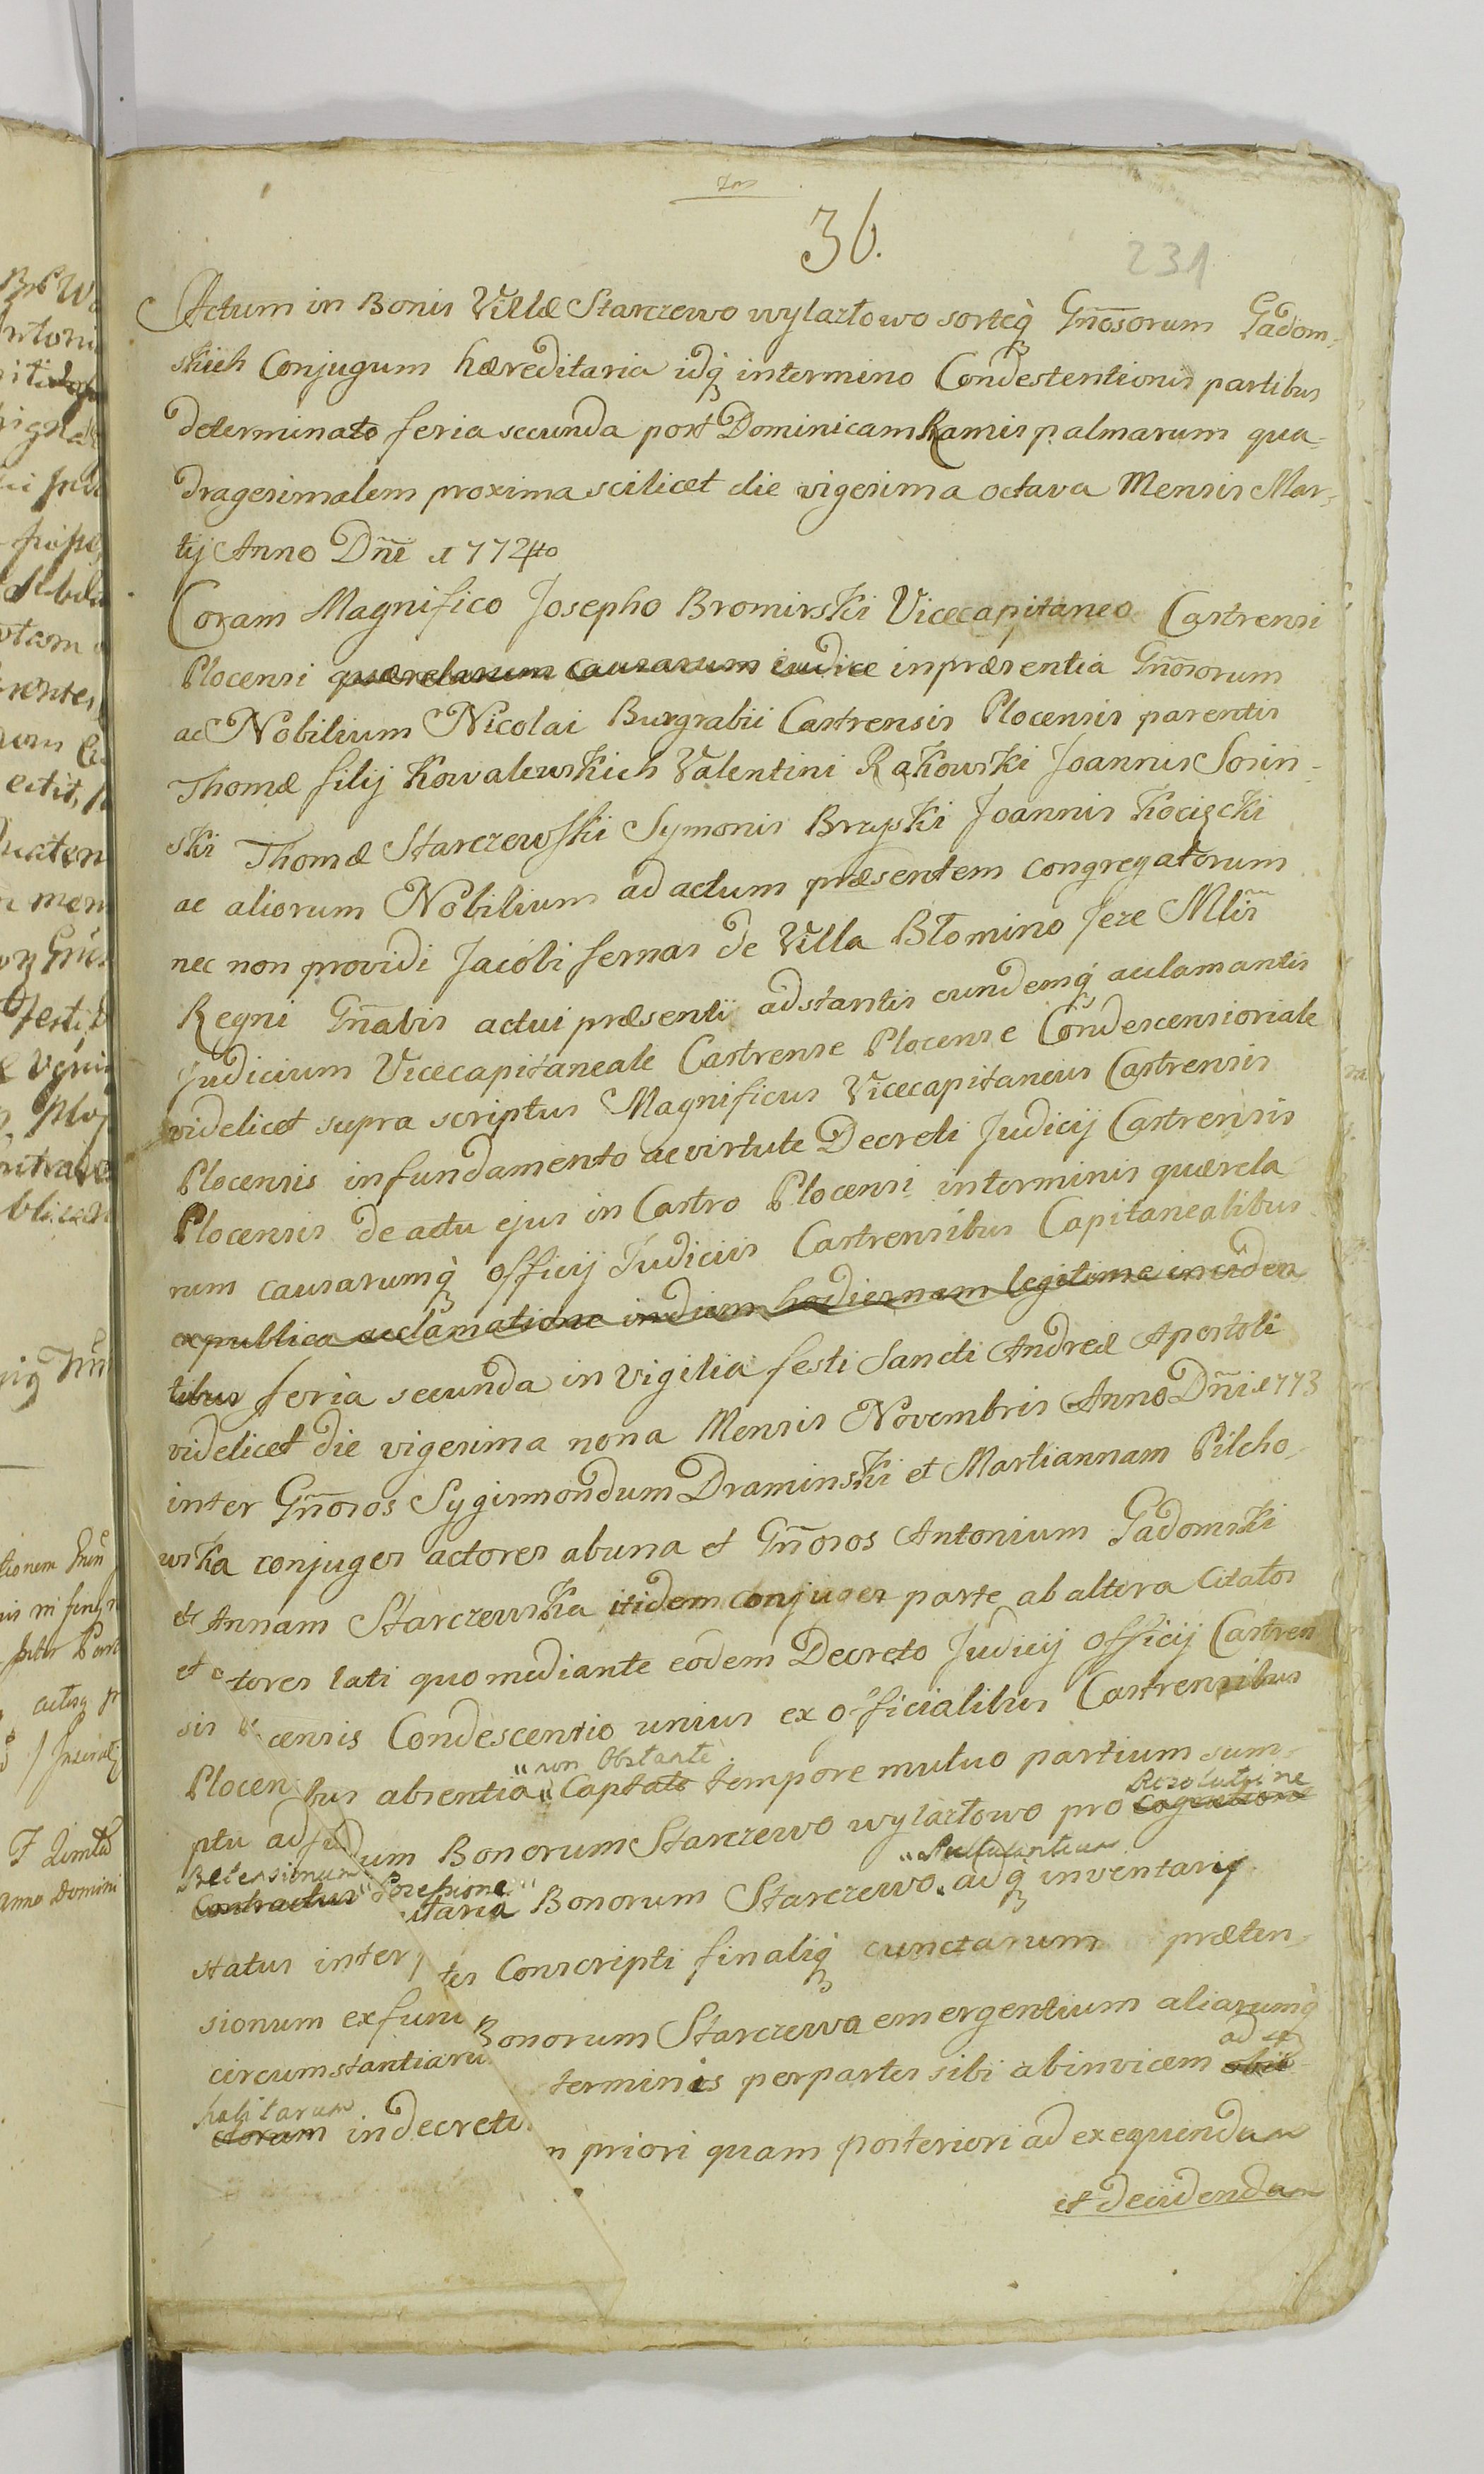 36.
231
Actum in Bonis Villæ Starczewo wylazłowo sorteq̀ Gn̄osorum Gadom-
skich Conjugum hæreditaria idq̀ intermino Condestentionis partibus
determinato feria secunda post Dominicam Ramis palmarum qua-
dragesimalem proxima scilicet die vigesima octava Mensis Mar-
tij Anno Dn̄i 1774to
Coram Magnifico Josepho Bromirski Vicecapitaneo Castrensi
Plocensi quærelarum causarum iudice inpræsentia Gn̄osorum
ac Nobilium Nicolai Burgrabii Castrensis Plocensis parentis
Thomæ filij Kowalewskich Valentini Rąkowski Joannis Sosin-
ski Thomæ Starczewski Symonis Brzyski Joannis Kocięcki
ac aliorum Nobilium ad actum præsentem congregatorum
nec non providi Jacobi sernas de Villa Błomino Jeze Mlis̄
Regni Gn̄alis actui præsenti adstantis eundemq̀ acclamantis
Judicium Vicecapitaneale Castrense Plocense Condescensioriale
videlicet supra scriptus Magnificus Vicecapitaneus Castrensis
Plocensis infundamento ac virtute Decreti Judicij Castrensis
Plocensis de actu ejus in Castro Plocensi interminis quærela
rum causarumq̀ officij Judiciis Castrensibus Capitanealibus
ex publica acclamatione indiem hodiernam legitime inciden
tibus feria secunda in vigilia festi Sancti Andreæ Apostoli
videlicet die vigesima nona Mensis Novembris Anno Dn̄i 1773
inter Gn̄osos Sygismondum Draminski et Martiannam Pilcho-
wska conjuges actores abuna et Gn̄osos Antonium Gadomski
et Annam Starczewska itidem conjuges parte ab altera Citatos
et tores lati quo mediante eodem Decreto Judicij officij Castren
sis censis Condescensio unius ex officialibus Castrensibus
non Obstante
Plocen bus absentia Captato tempore mutuo partium sum-
Resolutione
ptu ad dum Bonorum Starczewo wylazłowo pro cognitione
Retensionum Possessione
Contractus itaria Bonorum Starczewo adq̀ inventarij
status inter tes Conscripti finaliq̀ cunctarum præten-
sionum exfun Bonorum Starczewa emergentium aliarumq̀
ad se
circumstantiaru terminis perpartes sibi abinvicem obii
habitarum
ctorum indecreto n priori quam posteriori ad exequendum
et decidendum